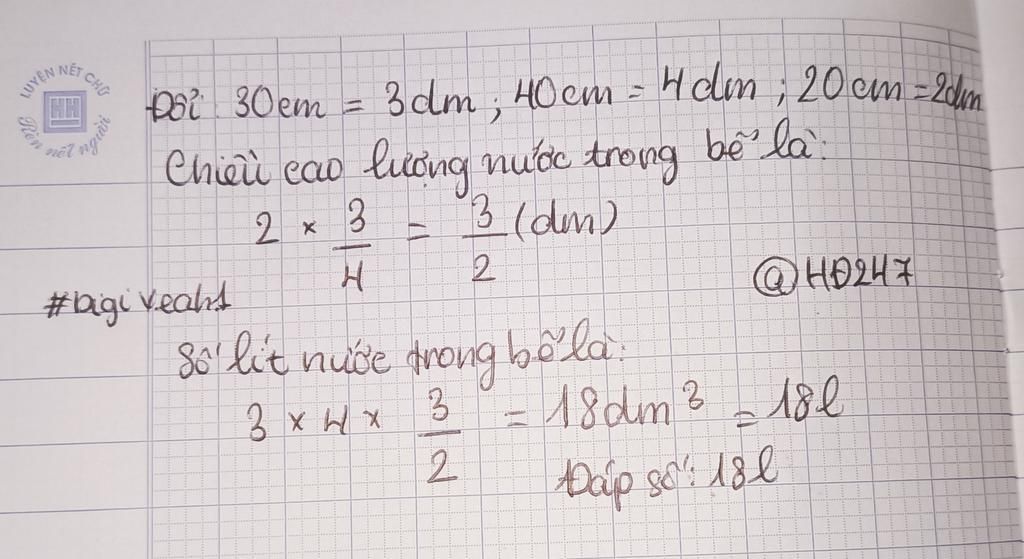 LUYỆN NÉT CHỮ
HH
Rèn nết người
Đổi: 30cm = 3dm; 40cm = 4dm; 20cm = 2dm
Chiều cao lượng nước trong bể là:
2 × 3/4 = 3/2 (dm)
@HĐ247
Số lít nước trong bể là:
3 × 4 × 3/2 = 18dm³ = 18l
Đáp số: 18l